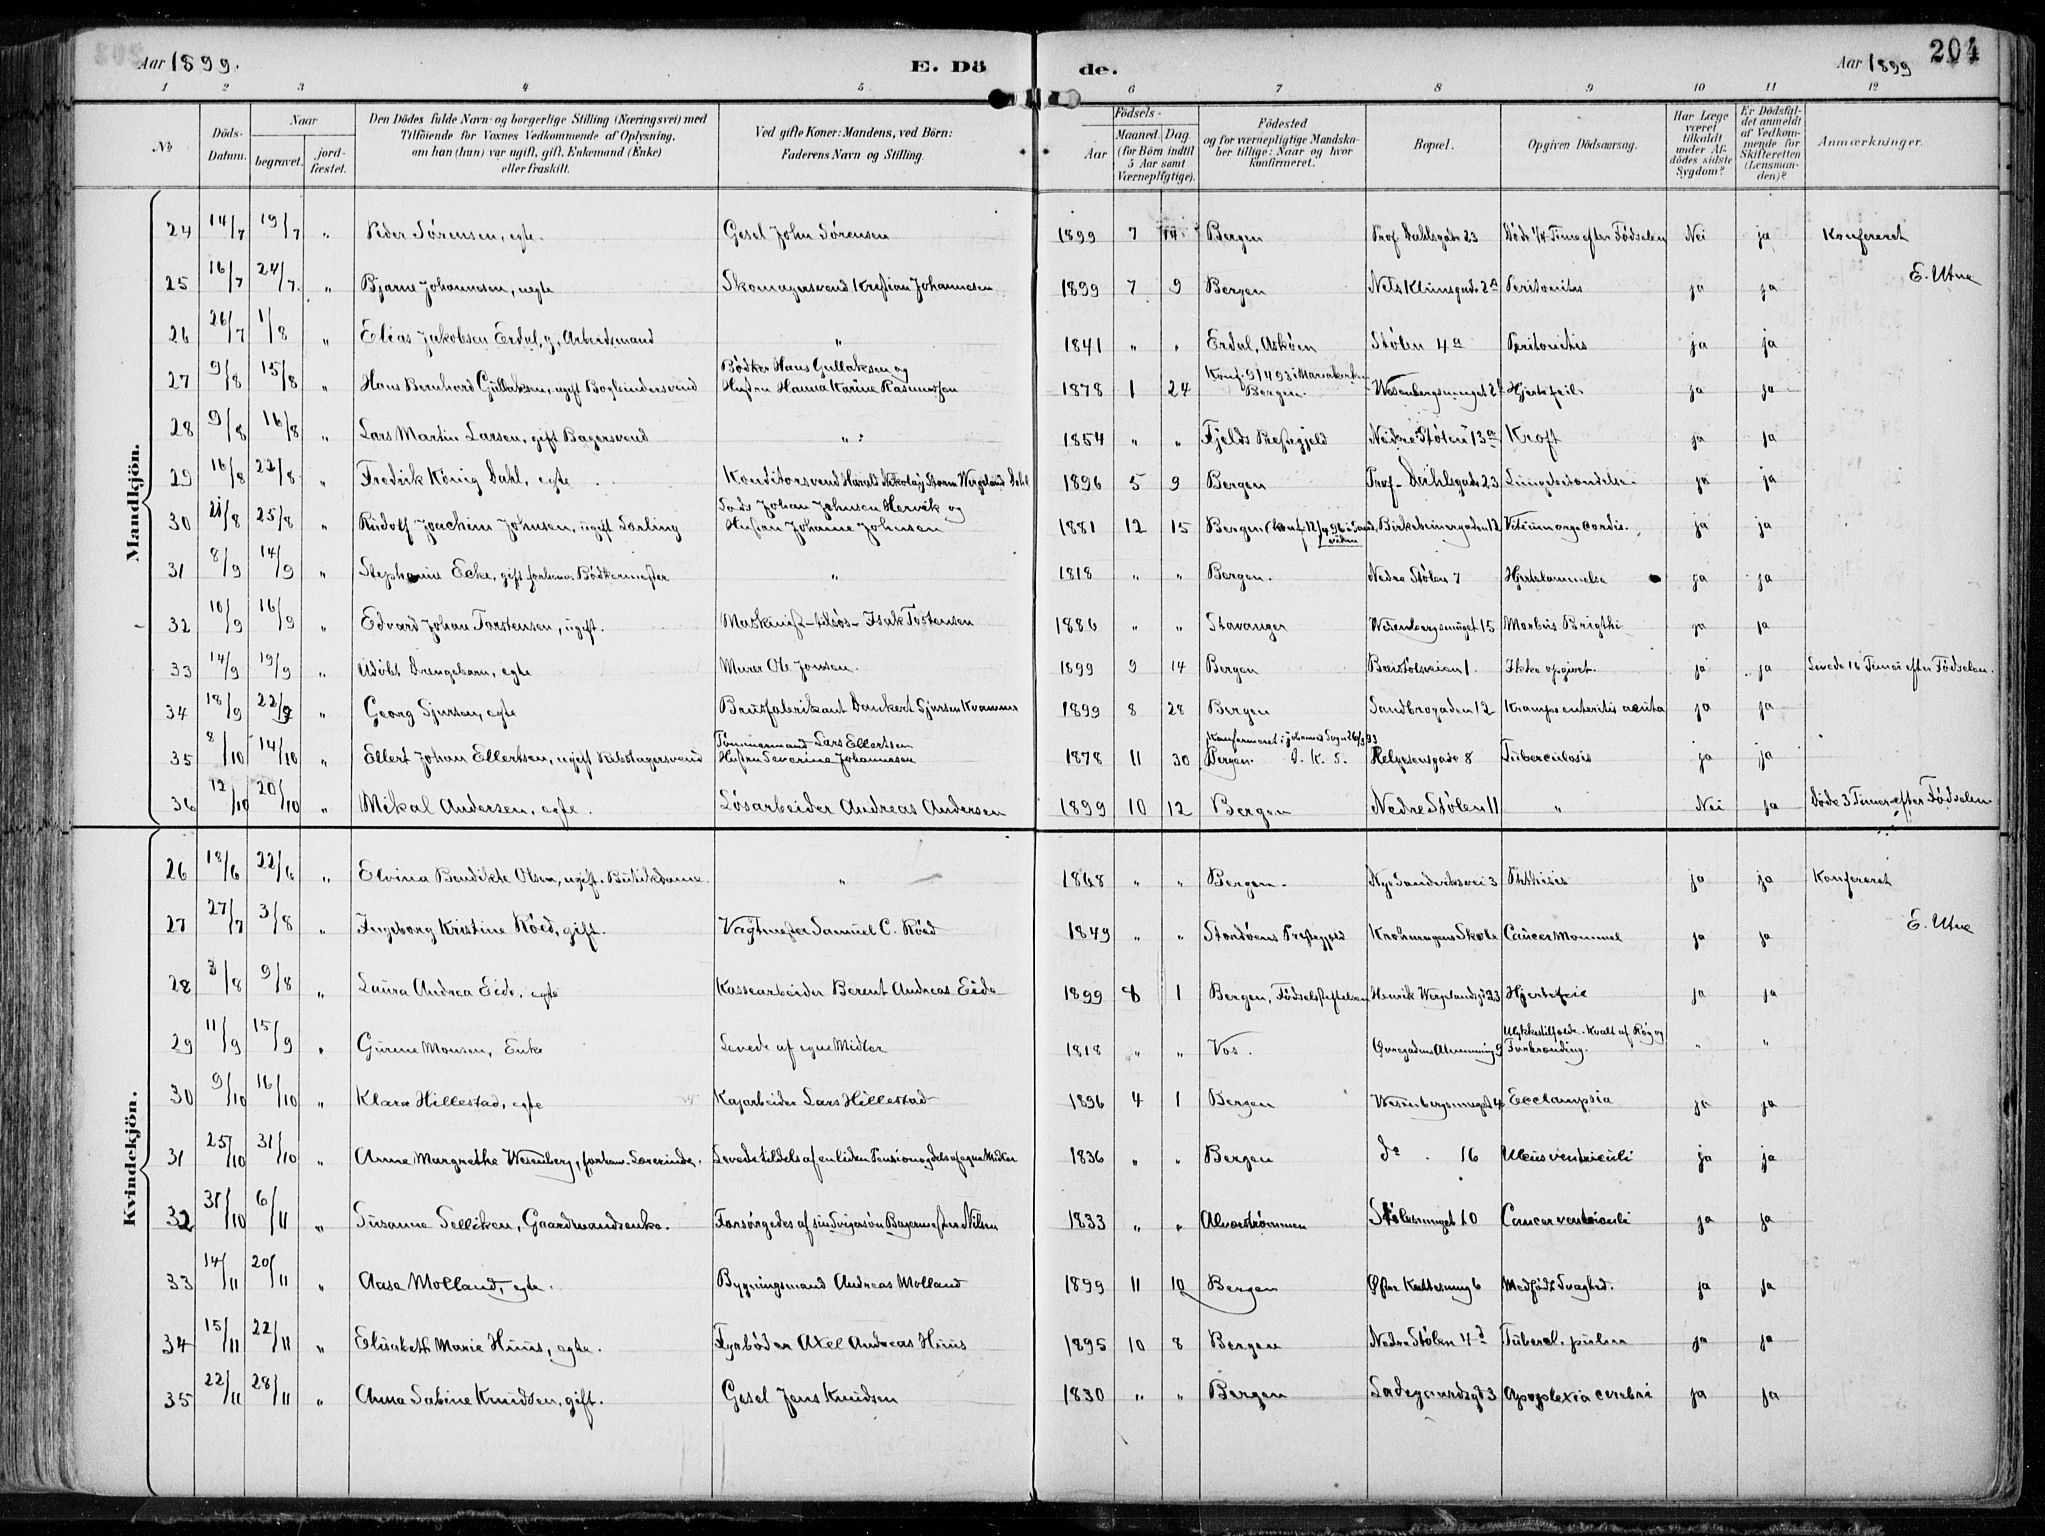 Aar 1899.
E. Dö
de.
Aar 1899
204
1 2 3 4 5 6 7 8 9 10 11 12
No
Döds-
Datum.
Naar
begravet.
jord-
fæstet.
Den Dödes fulde Navn og borgerlige Stilling (Næringsvei) med
Tilföiende for Voxnes Vedkommende af Oplysning,
om han (hun) var ugift, gift, Enkemand (Enke)
eller fraskilt.
Ved gifte Koner: Mandens, ved Börn:
Faderens Navn og Stilling.
Födsels-
Aar
Maaned Dag
(for Börn indtil
5 Aar samt
Værnepligtige).
Födested
og for værnepligtige Mandska-
ber tillige: Naar og hvor
konfirmeret.
Bopæl.
Opgiven Dödsaarsag.
Har Læge
været
tilkaldt
under Af-
dödes sidste
Sygdom?
Er Dödsfal-
det anmeldt
af Vedkom-
mende for
Skifteretten
(Lensman-
den)?
Anmærkninger.
Mandkjön.
24 14/7 19/7 " Peder Sörensen, egte. Gesel John Sörensen 1899 7 14 Bergen Prof. Dahlsgade 23 Döde 1/4 Time efter Födselen Nei ja Konfereret
E. Utne
25 16/7 24/7 " Bjarne Johannesen, uegte Skomagersvend Kristian Johannesen 1899 7 9 Bergen Nels Klimsgade 2a Peritonitis ja ja
26 26/7 1/8 " Elias Jakobsen Erdal, g, Arbeidsmand " 1841 " " Erdal, Asköen Stölen 4a Peritonitis ja ja
27 9/8 15/8 " Hans Bernhard Gullaksen, ugift Bogbindersvend Bödker Hans Gullaksen og
Hustru Hanna Karine Rasmussen 1878 1 24 Konf. 9/4 93 i Mariakirken
Bergen. Wesenbergsmuget Hjertefeil ja ja
28 9/8 16/8 " Lars Martin Larsen, gift Bagersvend " 1854 " " Fjelds Prestegjeld Nedre Stölen 13a Kræft ja ja
29 16/8 22/8 " Fredrik König Dahl, egte Konditorsvend Harald Nikolay Storm Wergeland Dahl 1896 5 9 Bergen Prof. Dahlsgade 23 Lungebetændelse. ja ja
30 21/8 25/8 " Rudolf Joachim Johnsen, ugift Johan Johnsen Hervik og
Hustru Johanne Johnsen 1881 12 15 Bergen Birkebeinergaden 12 Vitium org. cordis. ja ja
31 8/9 14/9 " Stephanus Ecke, gift forhenv. Bödkermester " 1818 " " Bergen. Nedre Stölen 7 Hjertelammelse ja ja
32 10/9 16/9 " Edvard Johan Torstensen, ugift. Maskinist tilsös Isak Tostensen 1886 " " Stavanger Wesenbergsmuget 15 Morbus Brigthi ja ja
33 14/9 19/9 " Udöbt Drengebarn, egte Murer Ole Jonsen. 1899 9 14 Bergen 1. Ikke opgivet. ja ja Levede 16 Timer efter Födselen.
34 18/9 22/9 " Georg Sjursen, egte Brusfabrikant Danckert Sjursen Kvamme 1899 8 28 Bergen Sandbrogaden 12 Krampe enteritis acuta ja ja
35 8/10 14/10 " Ellert Johan Ellertsen, ugift Rebslagersvend Tömmermand Lars Ellertsen
Hustru Severine Johannesen 1878 11 30 Konfirmeret i Johannes Sogn
Bergen. D. K. S. Helgesensgade 8 Tuberculosis ja ja
36 12/10 20/10 " Mikal Andersen, egte. Lösarbeider Andreas Andersen 1899 10 12 Bergen Nedre Stölen 11 " Nei ja Döde 3 Timer efter Födselen
Kvindekjön.
26 18/6 22/6 " Elvina Bendikte Olsen, ugift. Butikdame. " 1868 " " Bergen. Nye Sandviksvei 3 Phthisis ja ja Konfereret
E. Utne
27 27/7 3/8 " Ingeborg Kristine Röed, gift. Vagtmester Samuel C. Röed 1849 " " Stordöens Prestegjeld Krohnengens Skole Cancer Mammæ ja ja
28 3/8 9/8 " Laura Andrea Eide, egte Kassearbeider Berent Andreas Eide 1899 8 1 Bergen, Födselsstiftelsen Henrik Wergelandsgd 23 Hjertefeil ja ja
29 11/9 15/9 " Gurine Monsen, Enke Levede af egne Midler 1818 " " Vos. Övregadens Almenning 9 Ulykkestilfælde. Kvalt af Røg og
Forbrænding. " "
30 9/10 16/10 " Klara Hillestad, egte Kajarbeider Lars Hillestad 1896 4 1 Bergen Wesenbergsmuget 4 Ecclampsia ja ja
31 25/10 31/10 " Anna Margrethe Wesenberg, forhenv. Lærerinde. Levede tildels af en liden Pension og dels af egne Midler 1836 " " Bergen do. 16 Ulcus ventriculi ja ja
32 31/10 6/11 " Susanne Selliken, Gaardmandsenke. Forsörgedes af sin Svigersön Bagermester Nilsen 1833 " " Alverströmmen Stölesmuget 10 Cancer ventriculi ja ja
33 14/11 20/11 " Aasa Molland, egte. Bygningsmand Andreas Molland 1899 11 10 Bergen Öfre Kattesmug 6 Medfödt Svaghed. ja ja
34 15/11 22/11 " Elisabeth Marie Huus, egte. Fyrböder Axel Andreas Huus 1895 10 8 Bergen Nedre Stölen 4d Tubercl. pulm ja ja
35 22/11 28/11 " Anna Sabine Knudsen, gift. Gesel Jens Knudsen 1830 " " Bergen Ladegaardsgd 3 Apoplexia cerebri ja ja